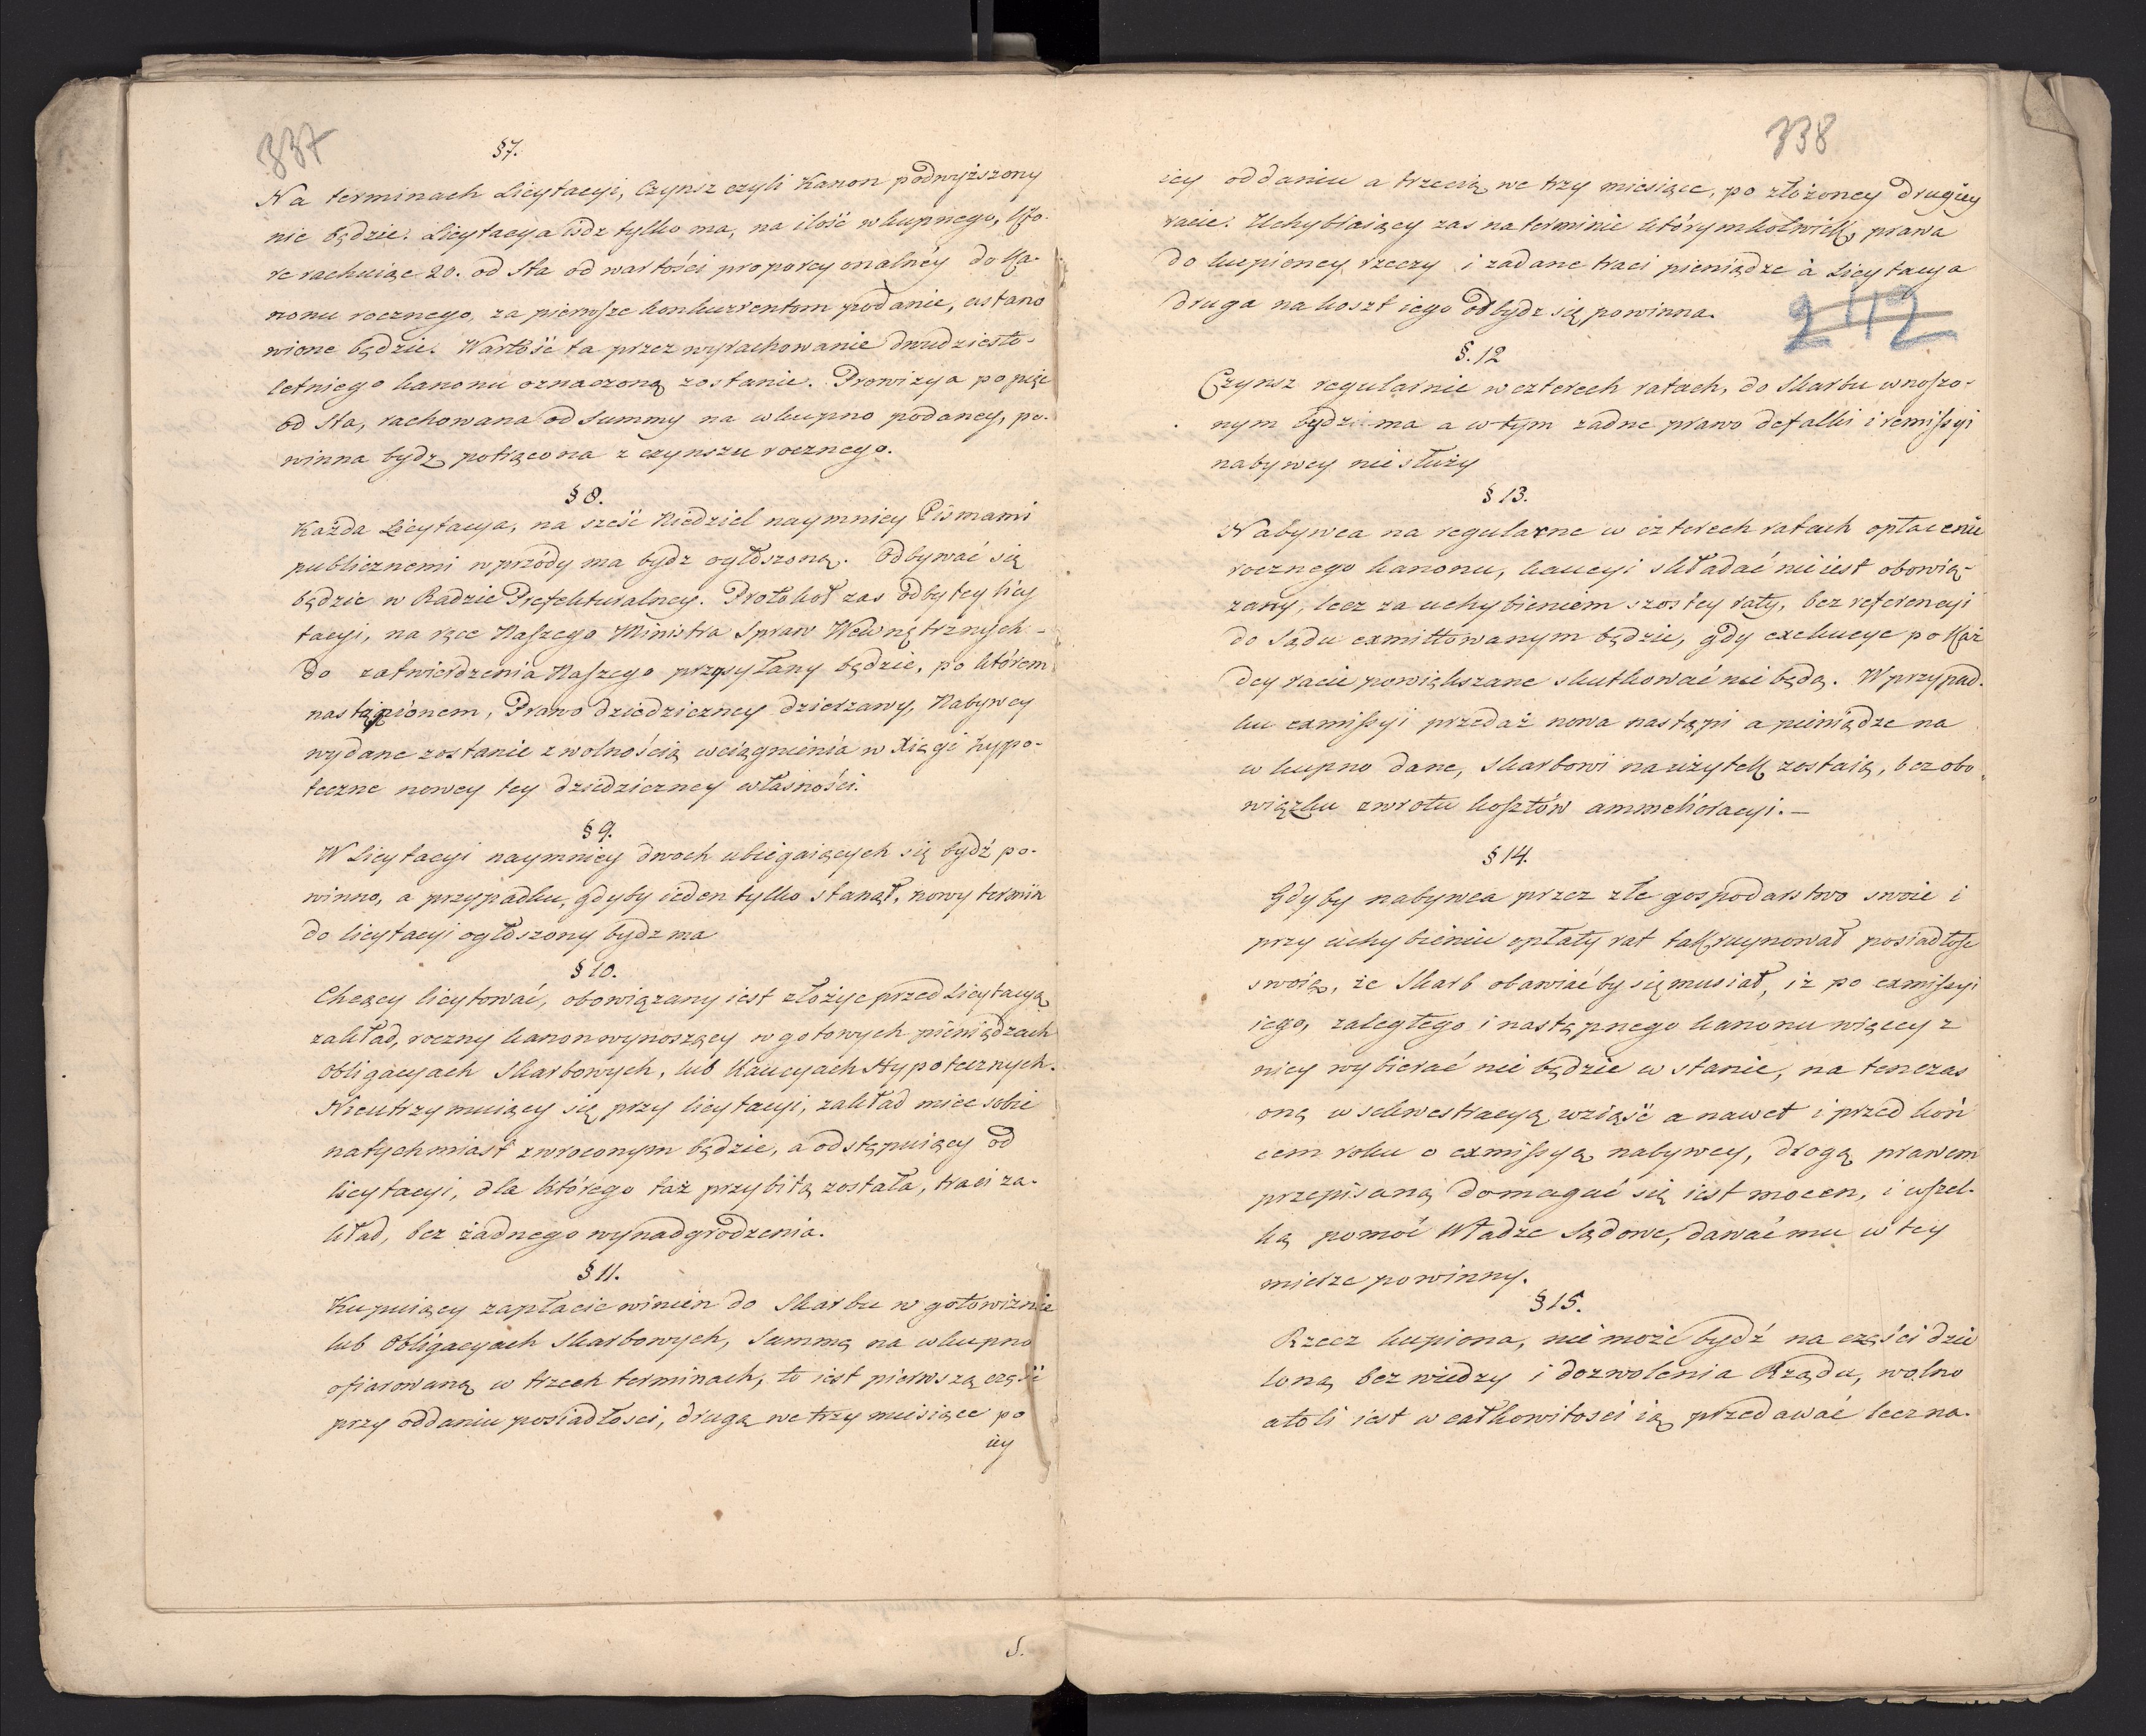 337
§ 7.
Na terminach Licytacyi, Czynsz czyli Kanon podwyższony
nie będzie. Licytacya iśdz tylko ma, na ilość wkupnego, któ-
re rachuiąc 20. od sta od wartości proporcyonalnéy do Ka-
nonu rocznego, za pierwsze konkurrentom podanie, ustano
wione będzie. Wartość ta przez wyrachowanie dwudziesto-
letniego kanonu oznaczoną zostanie. Prowizya po pięc
od Sta, rachowana od Summy na wkupno podaney, po-
winna bydz potrącona z czynszu rocznego.
§ 8.
Każda Licytacya, na sześć Niedziel naymniey Pismami
publicznemi wprzódy ma bydz ogłoszoną. Odbywać się
będzie w Radzie Prefekturalney. Protokoł zas odbytey licy
tacyi, na ręce Naszego Ministra Spraw Wewnętrznych -
do zatwierdzenia Naszego przysyłany będzie, po którem
nastąpionem, Prawo dziedziczney dzierżawy, Nabywcy
wydane zostanie z wolnością wciągnienia w Xięgi hypo-
teczne nowey tey dziedziczney własności.
§ 9.
W Licytacyi naymniey dwoch ubiegaiących się bydź po-
winno, a przypadku, gdyby ieden tylko stanął, nowy termin
do licytacyi ogłoszony bydz ma
§ 10.
Chcący licytować, obowiązany iest złożyc przed Licytacyą
zakład, roczny kanon wynoszący w gotowych pieniądzach
Obligacyach Skarbowych, lub Kaucyach Hypotecznych.
Nieutrzymuiący się przy licytacyi, zakład miec sobie
natychmiast zwroconym będzie, a odstępuiący od
licytacyi, dla którego taż przybitą została, traci za-
kład, bez żadnego wynadgrodzenia.
§ 11.
Kupuiący zapłacic winien do Skarbu w gotowiznie
lub Obligacyach Skarbowych, Summę na wkupno
ofiarowaną w trzech terminach, to iest pierwszą część
przy oddaniu posiadłosci, drugą we trzy miesiące po
iey
S.
338
iey oddaniu a trzecią we trzy miesiące, po złożoney drugiey
racie. Uchybiaiący zas na terminie którymkolwiek, prawa
do kupioney rzeczy i zadane traci pieniądze à Licytacya
druga na koszt iego odbydz się powinna.
2112
§. 12
Czynsz regularnie w czterech ratach, do Skarbu wnoszo-
nym bydz ma a w tym żadne prawo defalki i remissyi
nabywcy nie służy
§ 13.
Nabywca na regularne w czterech ratach opłacenie
rocznego kanonu, kaucyi składać nie iest obowią-
zany, lecz za uchybieniem szostey raty, bez referencyi
do Sądu exmittowanym będzie, gdy exekucye po Każ
dey racie powiększane skutkować nie będą. W przypad-
ku exmissyi przedaż nowa nastąpi a pieniądze na
wkupno dane, Skarbowi na użytek zostaią, bez obo
wiązku zwrotu kosztów ammelioracyi. -
§ 14.
Gdyby nabywca przez złe gospodarstwo swoie i
przy uchybieniu opłaty rat tak ruynował posiadłość
swoią, że Skarb obawiać by się musiał, iż po exmissyi
iego, zaległego i następnego kanonu więcey z
niey wybierać nie będzie w stanie, na ten czas
oną w sekwestracyą wziąść a nawet i przed koń
cem roku o exmissyą nabywcy, drogą prawem
przepisaną domagać się iest mocen, i wszel-
ką pomoc Władze Sądowe, dawać mu w tey
mierze powinny.
§ 15.
Rzecz kupiona, nie może bydź na części dzie
loną bez wiedzy i dozwolenia Rządu, wolno
atoli iest w całkowitosci ią przedawać lecz na-